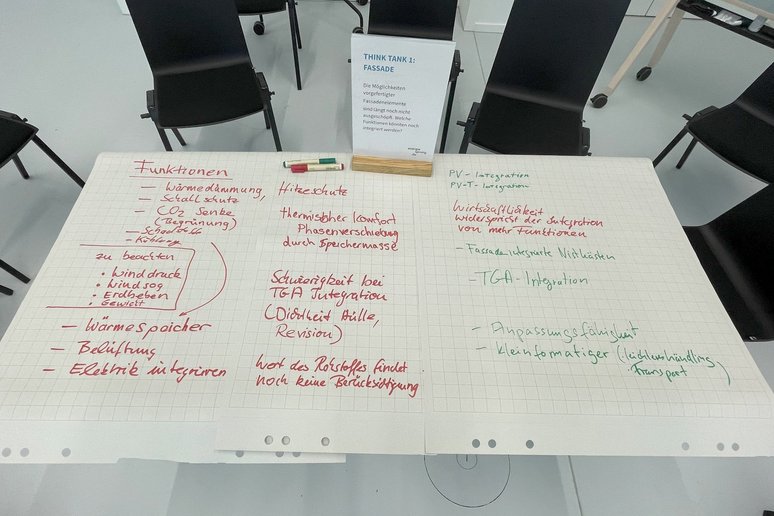 THINK TANK 1:
FASSADE
Die Möglichkeiten
vorgefertigter
Fassadenelemente
sind längst noch nicht
ausgeschöpft. Welche
Funktionen könnten noch
integriert werden?
Funktionen
- Wärmedämmung,
- Schallschutz
- CO2 Senke
(Begrünung)
- Kühlung
zu beachten
• Winddruck
• Windsog
• Erdbeben
• Gewicht
- Wärmespeicher
- Belüftung
- Elektrik integrieren
Hitzeschutz
thermischer Komfort
Phasenverschiebung
durch Speichermasse
Schwierigkeit bei
TGA Integration
(Dichtheit Hülle,
Revision)
Wert des Rohstoffes findet
noch keine Berücksichtigung
PV-Integration
PV-T-Integration
Wirtschaftlichkeit
widerspricht der Integration
von mehr Funktionen
- Fassadenintegrierte Nistkästen
- TGA-Integration
- Anpassungsfähigkeit
- kleinformatiger (
Transport)